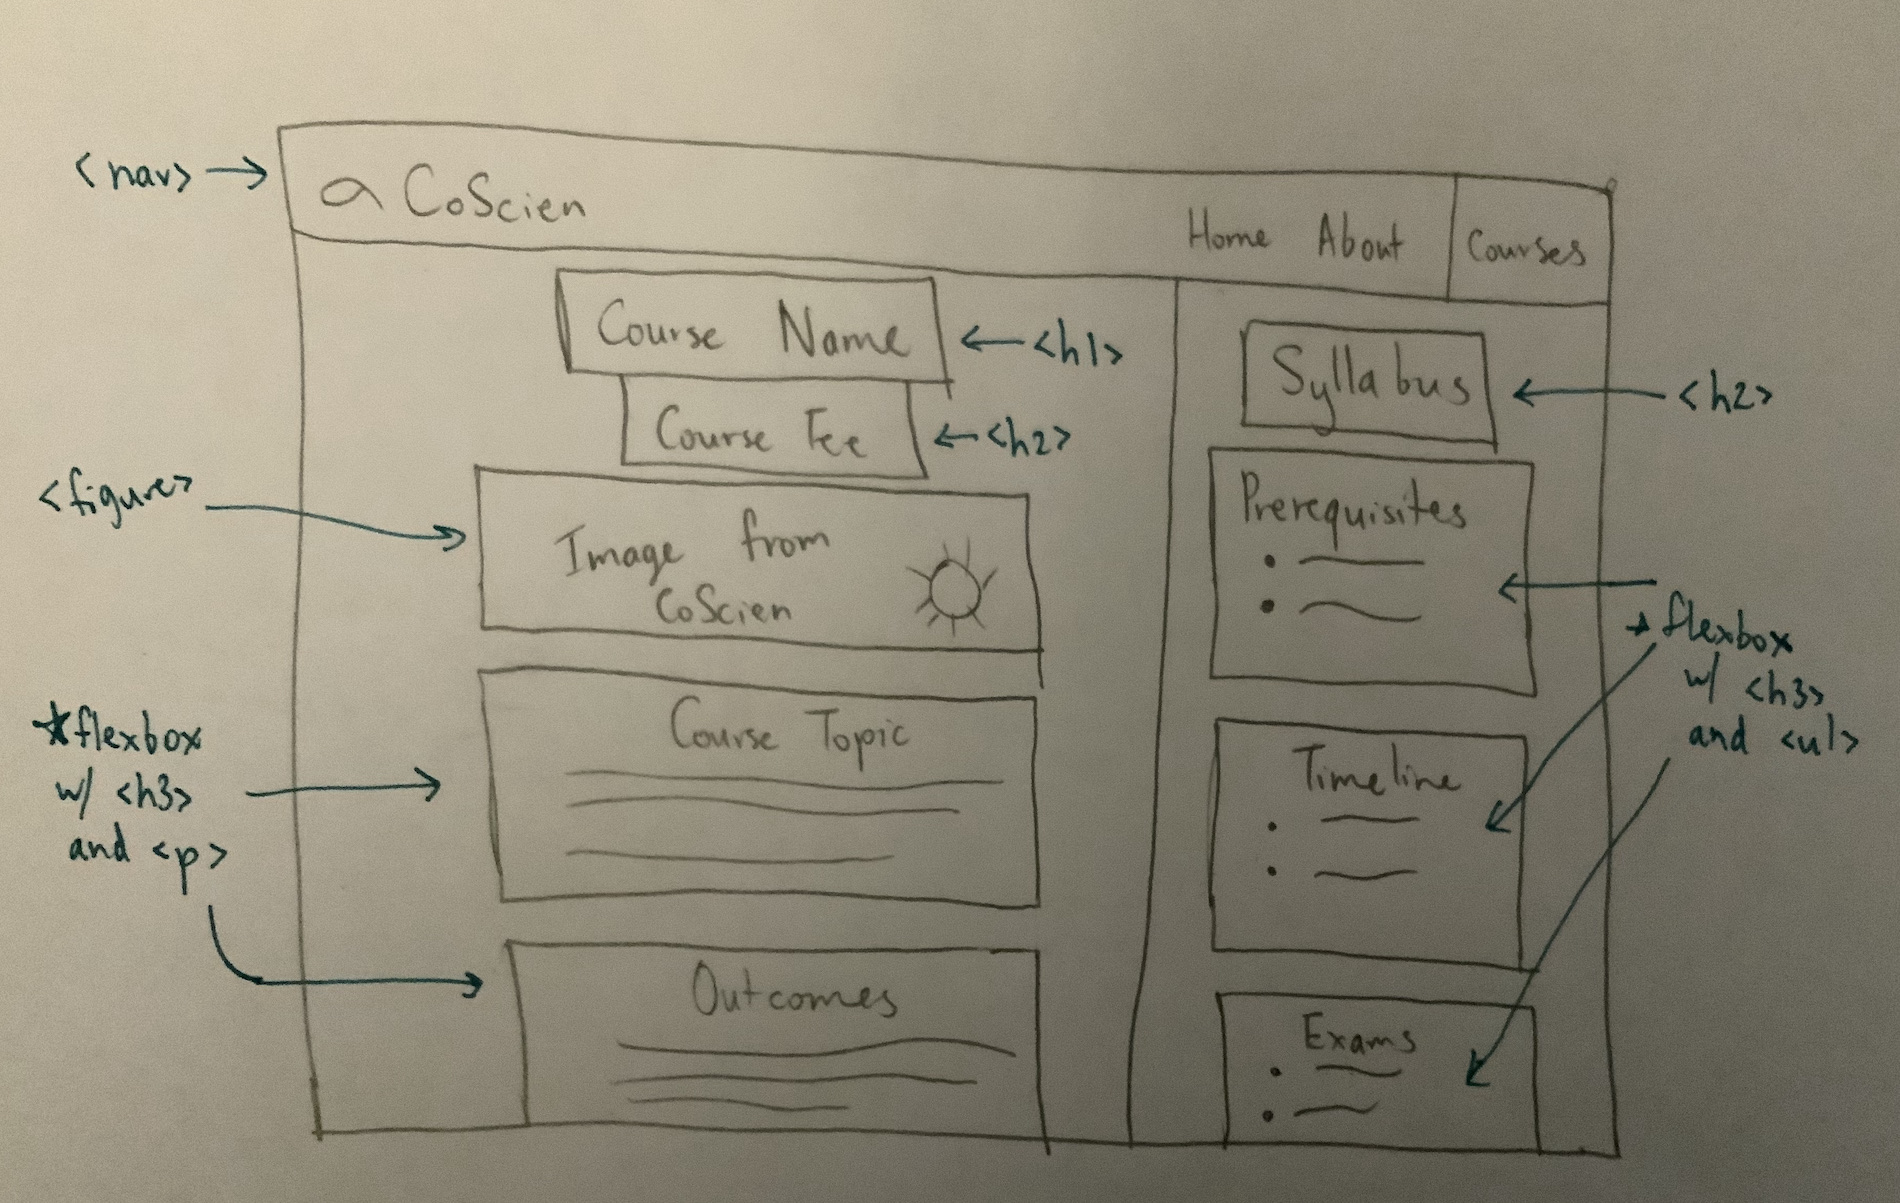 <nav>
CoScien
Home About Courses
Course Name
<h1>
Course Fee
<h2>
<figure>
Image from
CoScien
★flexbox
w/ <h3>
and <p>
Course Topic
Outcomes
Syllabus
<h2>
Prerequisites
Timeline
Exams
★flexbox
w/ <h3>
and <ul>